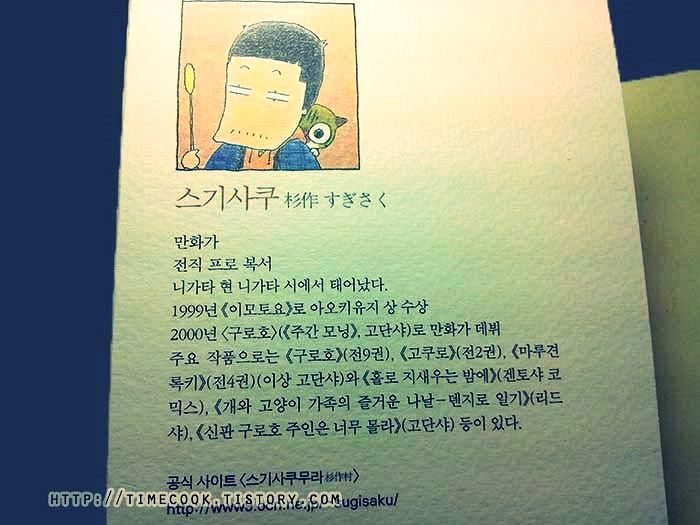 스기사쿠 杉作 すぎさく
만화가
전직 프로 복서
니가타 현 니가타 시에서 태어났다.
1999년 《이모토요》로 아오키유지 상 수상
2000년 〈구로호〉(《주간 모닝》, 고단샤)로 만화가 데뷔
주요 작품으로는 《구로호》(전9권), 《고쿠로》(전2권), 《마루견
록키》(전4권)(이상 고단샤)와 《홀로 지새우는 밤에》(겐토샤 코
믹스), 《개와 고양이 가족의 즐거운 나날-덴지로 일기》(리드
샤), 《신판 구로호 주인은 너무 몰라》(고단샤) 등이 있다.
공식 사이트 〈스기사쿠무라 杉作村〉
HTTP://TIMECOOK.TISTORY.COM